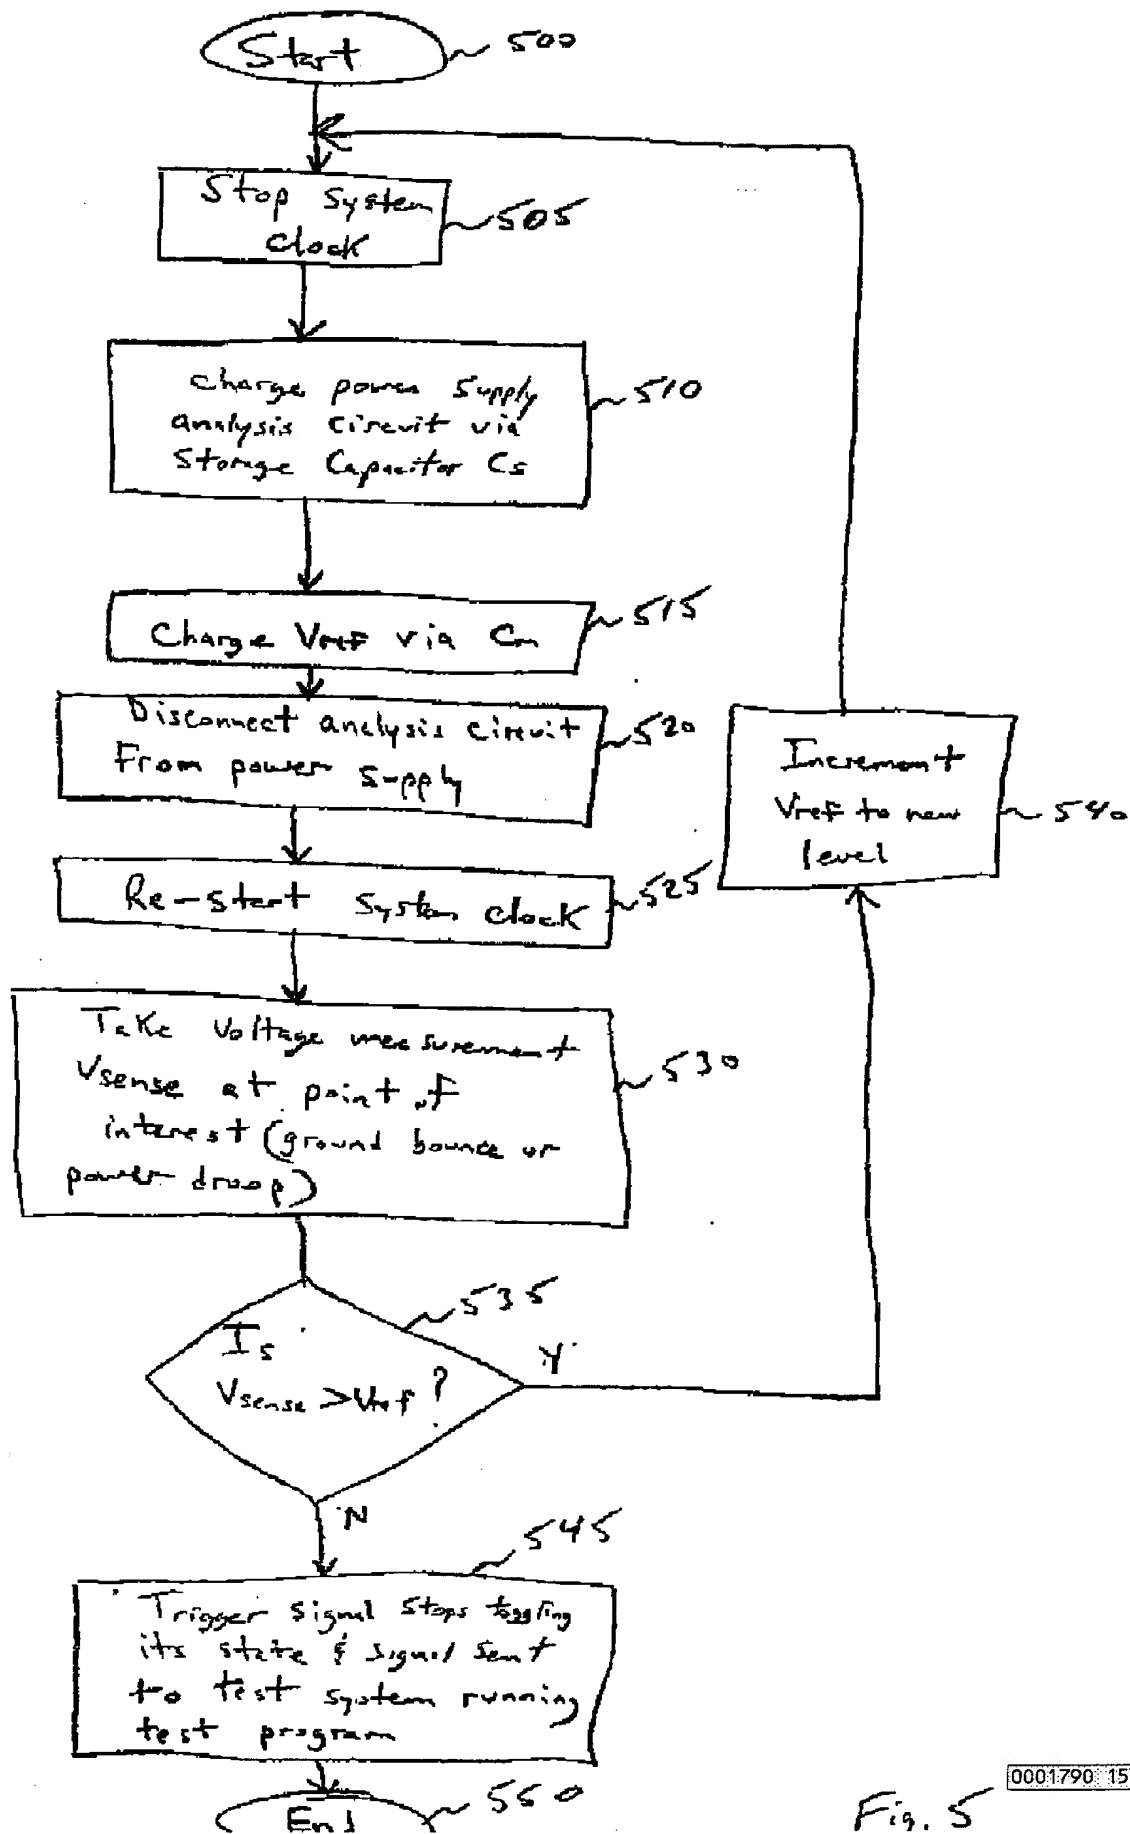 Start
500
Stop System
Clock
505
Charge power Supply
analysis circuit via
Storage Capacitor Cs
510
Charge Vref via Cm
515
Disconnect analysis circuit
From power supply
520
Re-start system clock
525
Take Voltage measurement
Vsense at point of
interest (ground bounce or
power droop)
530
Is
Vsense > Vref?
535
Y
Increment
Vref to new
level
540
N
Trigger signal stops toggling
its state & signal sent
to test system running
test program
545
End
550
Fig. 5
0001790 15